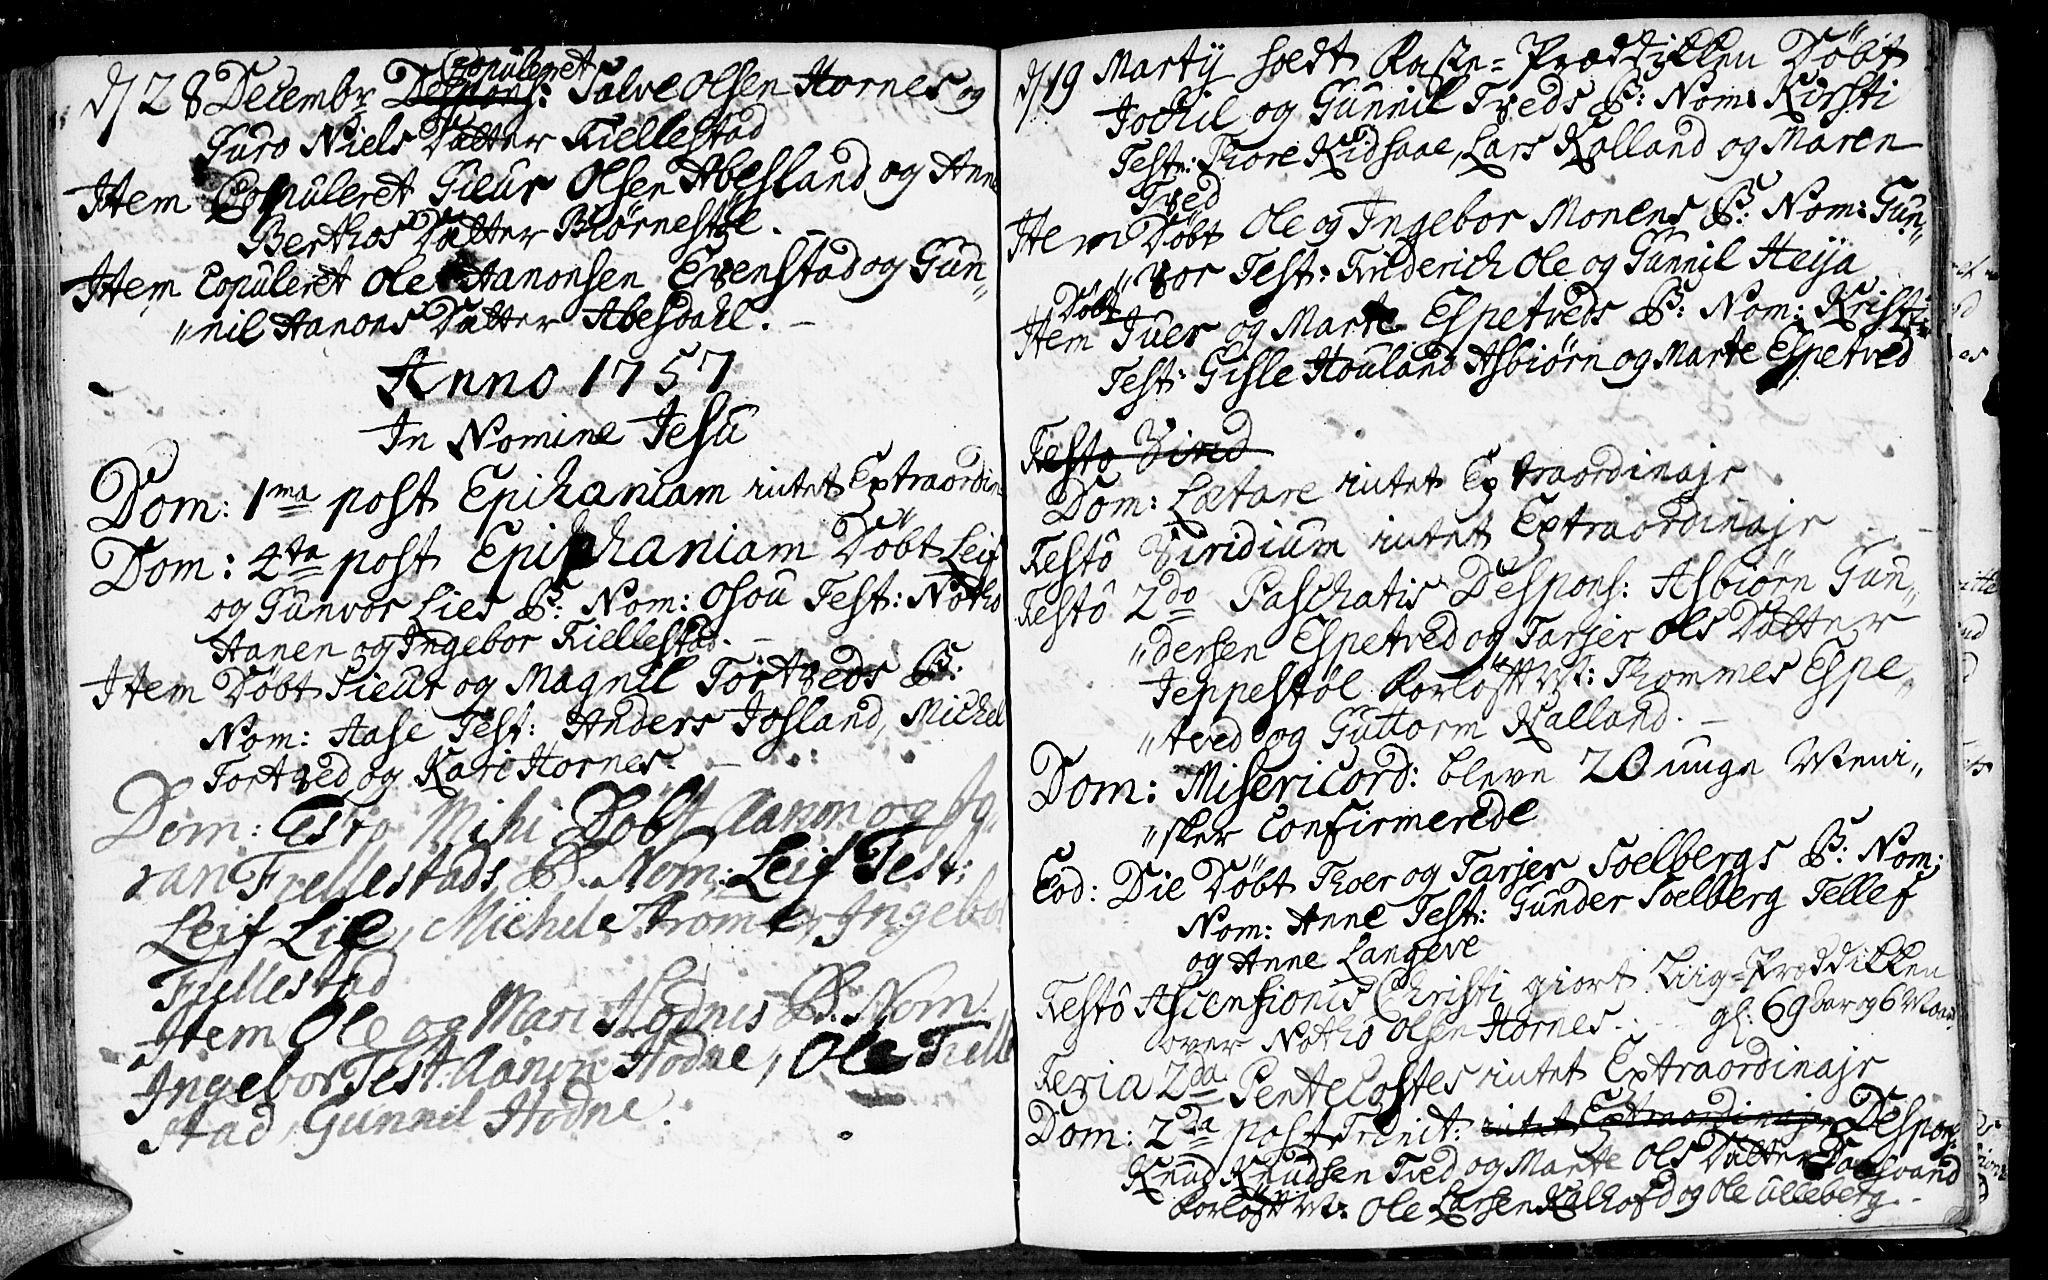 d/28 Decembr: Despons: Copuleret Salve Olsen Hornes og
Guro Niels Datter Fiellestad
Item Copuleret Sieur Olsen Abesland og Anne
Berthos Datter Biørnestøl. –
Item Copuleret Ole Aanonsen Evenstad og Gun„
„nil Aanons Datter Abesdahl. –
Anno 1757
In Nomine Jesu
Dom: 1ma post Epihaniam intet Extraordin
Dom: 4ta post Epiphaniam Døbt Leif
og Gunvor Lies B: Nom: Osou Test: Notho
Aanen og Ingebor Fiellestad. –
Item Døbt Sieur og Magnil Tortveds B:
Nom: Aase Test: Anders Josland, Michel
Tortved og Kari Hornes. –
Dom: Esto Mihi Døbt Aanon og Jø„
ran Fiellestads B. Nom: Leif Test:
Leif Lie, Michel Strømer Ingebor
Fiellestad
Item Ole og Mari Hodnes B. Nom
Ingebor Test: Aanon Hodne, Ole Fielle
stad, Gunnil Hodne.
d/19 Martij holdt Faste-Prædikken Døbt
Jochil og Gunnil Tveds B: Nom: Kirsti
Test: Thore Kidsaae, Lars Kalland og Maren
Tved
Item Døbt Ole og Ingebor Monens B: Nom: Gun„
„vor Test: Friderich Ole og Gunnil Heija
Item Døbt Iver og Marte Espetveds B: Nom: Kristi
Test: Gisle Houland Asbiørn og Marte Espetved
Festo Virid
Dom: Lætare intet Extraordinajr
Festô Viridium intet Extraordinajr –
Festô 2do Paschatis Despons: Asbiørn Gun„
„dersen Espetved og Tarjer Ols Datter
Jeppestøl Forløftt M: Thommes Espe„
„tved og Guttorm Kalland. –
Dom: Misericord: bleve 20 unge Menni„
„sker Confirmerede
Eod: Die Døbt Thoer og Tarjer Soelbergs B: Nom:
Nom: Anne Test: Gunder Soelberg Tellef
og Anne Langeve
Festô Ascensionis Christi giort Liig-Prædikken
over Notho Olsen Hornes. – gl: 69 Aar og 6 Maan
Feria 2da Pentecostes intet Extraordinajr
Dom: 2da post Trinit: intet Extraordinajr Despons:
Knud Knudsen Tved og Marte Ols Datter
Forløftt M: Ole Larsen og Ole Ulleberg –